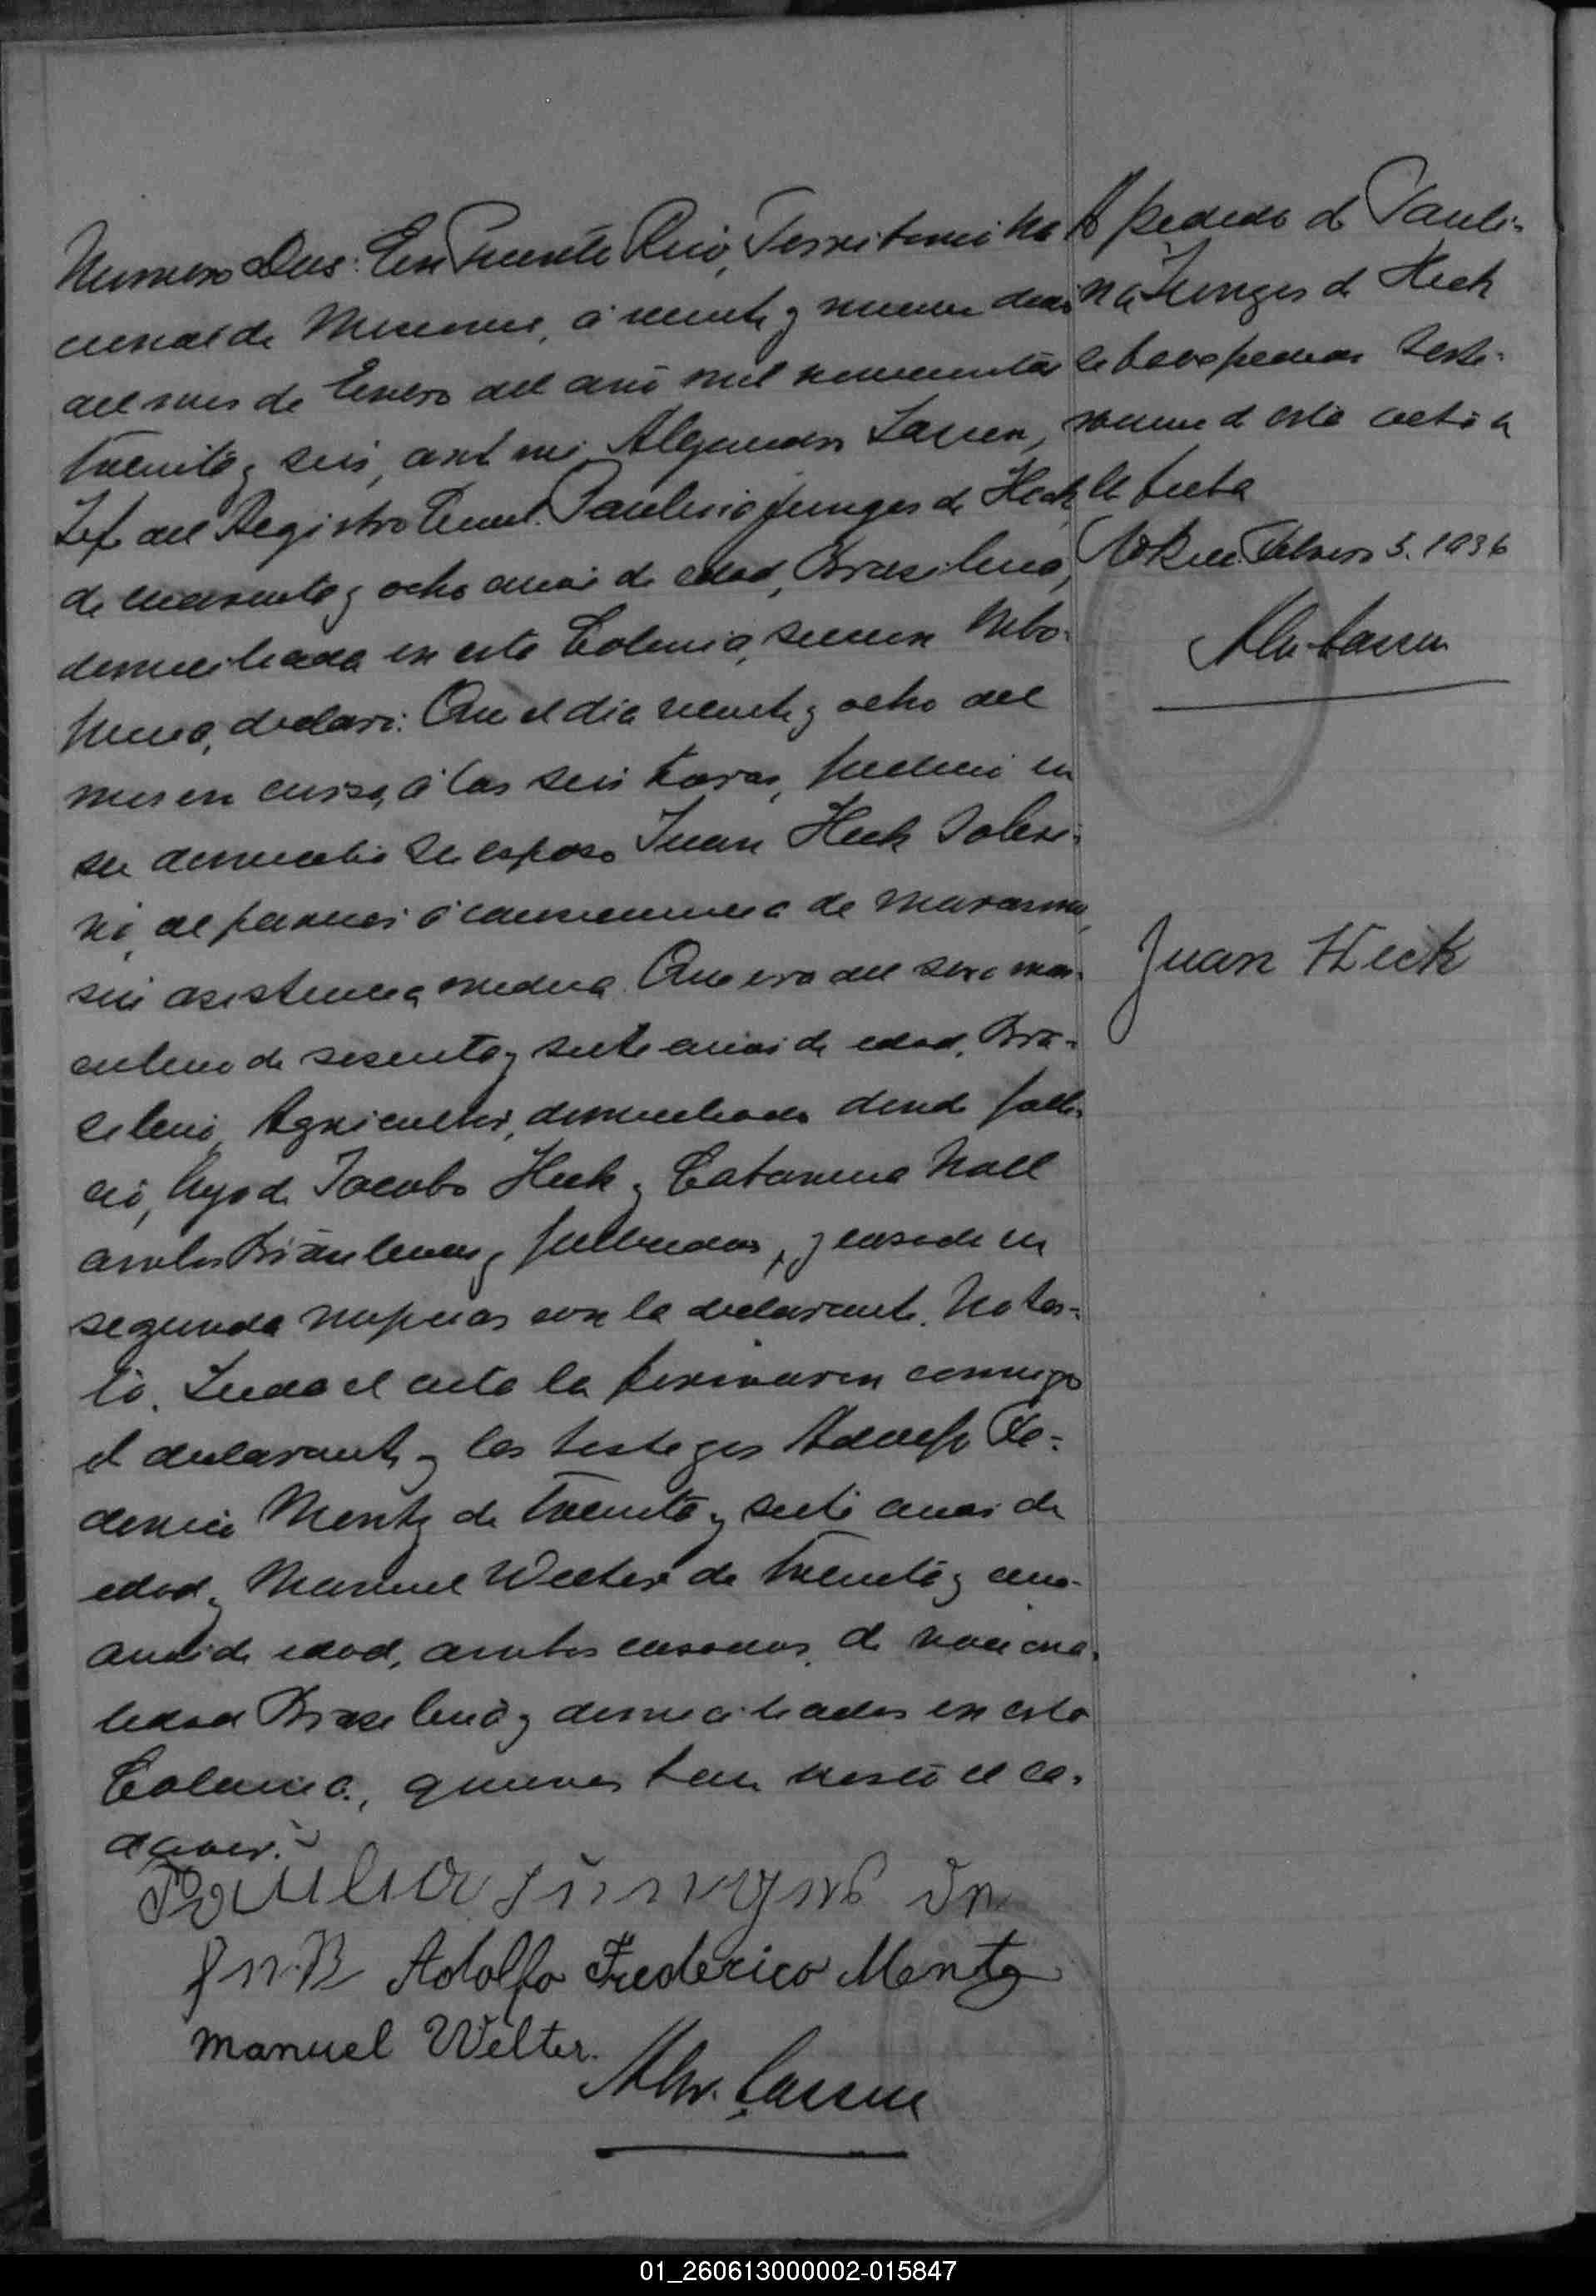 Numero Dos: En Puerto Rico, Territorio Na
cional de Misiones, á veinte y nueve dias
del mes de Enero del año mil novecientos
treinta y seis, ante mi Alejandro
Jefe del Registro Civil. Paulina Junges de Heck
de cuarenta y ocho años de edad, Brasilena,
domiciliada en esta Colonia,
declaró: Que el dia veinte y ocho del
mes en curso, á las seis horas, falleció en
su domicilio su esposo Juan Heck
á consecuencia de marasmo,
sin asistencia medica. Que era del sexo mas-
culino de sesenta y siete años de edad, Bra-
sileno, Agricultor, domiciliado donde falle-
ció, hijo de Jacobo Heck y Catarina Noll
ambos Brasilenos y fallecidos, y casado en
segunda nupcias con la declarante. No tes-
tó. Leida el acta la firmaron conmigo
el declarante y los testigos Adolfo Fe-
derico Mentz de treinta y siete años de
edad y Manuel Welter de treinta y
años de edad, ambos casados, de naciona-
lidad Brasilena y domiciliados en esta
Colonia, quienes han visto el ca-
daver.
Paulina Junges de
Heck Adolfo Frederico Mentz
Manuel Welter.
A pedido de Pauli-
na Junges de Heck
se testi-
monio de esta acta a
la fecha
Febrero 5. 1936
Juan Heck
01_260613000002-015847